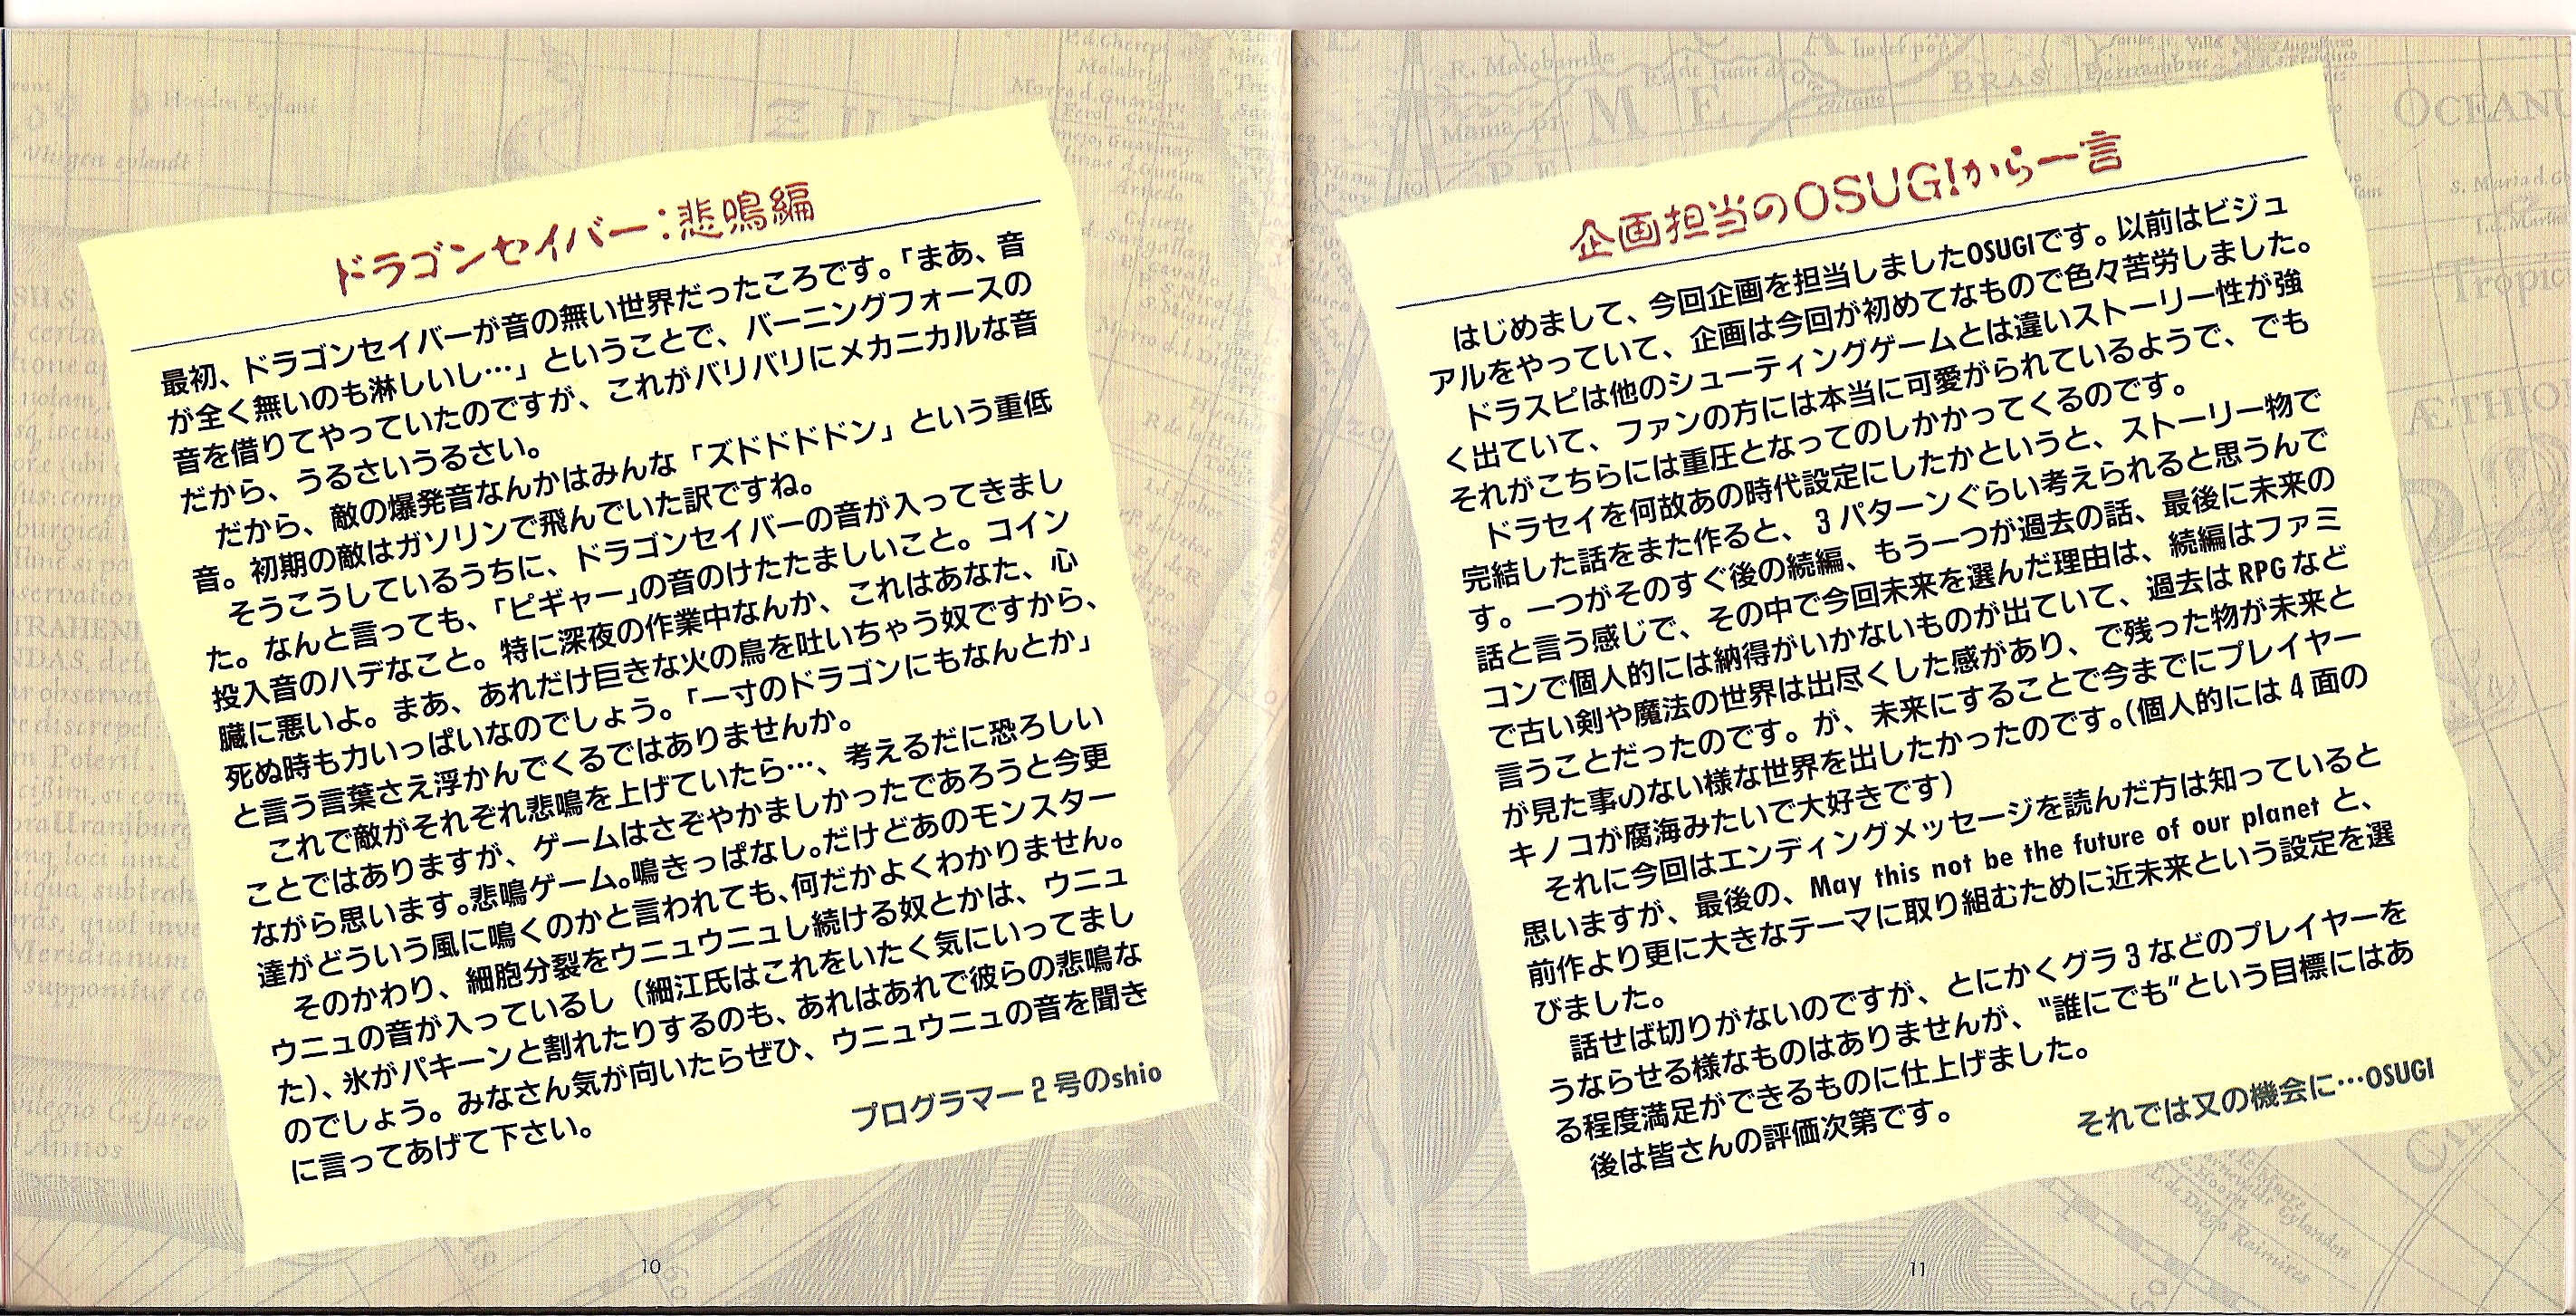 ドラゴンセイバー：悲鳴編
最初、ドラゴンセイバーが音の無い世界だったころです。「まあ、音
が全く無いのも淋しいし…」ということで、バーニングフォースの
音を借りてやっていたのですが、これがバリバリにメカニカルな音
だから、うるさいうるさい。
だから、敵の爆発音なんかはみんな「ズドドドドン」という重低
音。初期の敵はガソリンで飛んでいた訳ですね。
そうこうしているうちに、ドラゴンセイバーの音が入ってきまし
た。なんと言っても、「ピギャー」の音のけたたましいこと。コイン
投入音のハデなこと。特に深夜の作業中なんか、これはあなた、心
臓に悪いよ。まあ、あれだけ巨きな火の鳥を吐いちゃう奴ですから、
死ぬ時も力いっぱいなのでしょう。「一寸のドラゴンにもなんとか」
と言う言葉さえ浮かんでくるではありませんか。
これで敵がそれぞれ悲鳴を上げていたら…、考えるだに恐ろしい
ことではありますが、ゲームはさぞやかましかったであろうと今更
ながら思います。悲鳴ゲーム。鳴きっぱなし。だけどあのモンスター
達がどういう風に鳴くのかと言われても、何だかよくわかりません。
そのかわり、細胞分裂をウニュウニュし続ける奴とかは、ウニュ
ウニュの音が入っているし（細江氏はこれをいたく気にいってまし
た）、氷がパキーンと割れたりするのも、あれはあれで彼らの悲鳴な
のでしょう。みなさん気が向いたらぜひ、ウニュウニュの音を聞き
に言ってあげて下さい。
プログラマー2号のshio
10
企画担当のOSUGIから一言
はじめまして、今回企画を担当しましたOSUGIです。以前はビジュ
アルをやっていて、企画は今回が初めてなもので色々苦労しました。
ドラスピは他のシューティングゲームとは違いストーリー性が強
く出ていて、ファンの方には本当に可愛がられているようで、でも
それがこちらには重圧となってのしかかってくるのです。
ドラセイを何故あの時代設定にしたかというと、ストーリー物で
完結した話をまた作ると、3パターンぐらい考えられると思うんで
す。一つがそのすぐ後の続編、もう一つが過去の話、最後に未来の
話と言う感じで、その中で今回未来を選んだ理由は、続編はファミ
コンで個人的には納得がいかないものが出ていて、過去はRPGなど
で古い剣や魔法の世界は出尽くした感があり、で残った物が未来と
言うことだったのです。が、未来にすることで今までにプレイヤー
が見た事のない様な世界を出したかったのです。（個人的には4面の
キノコが腐海みたいで大好きです）
それに今回はエンディングメッセージを読んだ方は知っていると
思いますが、最後の、May this not be the future of our planet と、
前作より更に大きなテーマに取り組むために近未来という設定を選
びました。
話せば切りがないのですが、とにかくグラ3などのプレイヤーを
うならせる様なものはありませんが、“誰にでも”という目標にはあ
る程度満足ができるものに仕上げました。
後は皆さんの評価次第です。
それでは又の機会に…OSUGI
11